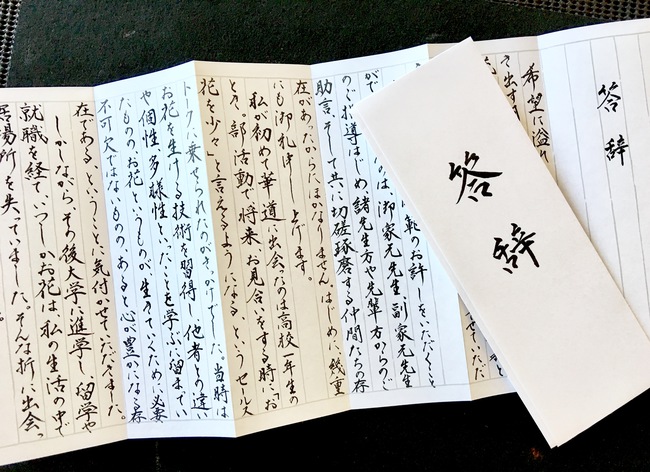 答辞
答辞
希望に溢れ
き出す
のご指導はじめ諸先生方や先輩方からのご
助言、そして共に切磋琢磨する仲間たちの存
在があったからにほかなりません。はじめに、幾重
にも御礼申し上げます。
私が初めて華道に出会ったのは高校一年生の
とき。部活動で、将来、お見合いをする時に「お
花を少々」と言えるようになる、というセルス
トークに乗せられたのがきっかけでした。当時は
お花を生ける技術を習得し、他者との違い
や個性、多様性といったことを学ぶに留まってい
たものの、お花というものが、生きていくために必要
不可欠ではないものの、あると心が豊かになる存
在である、ということに気付かせていただきました。
しかしながら、その後大学に進学し、留学や
就職を経て、いつしかお花は、私の生活の中で
居場所を失っていました。そんな折に出会っ